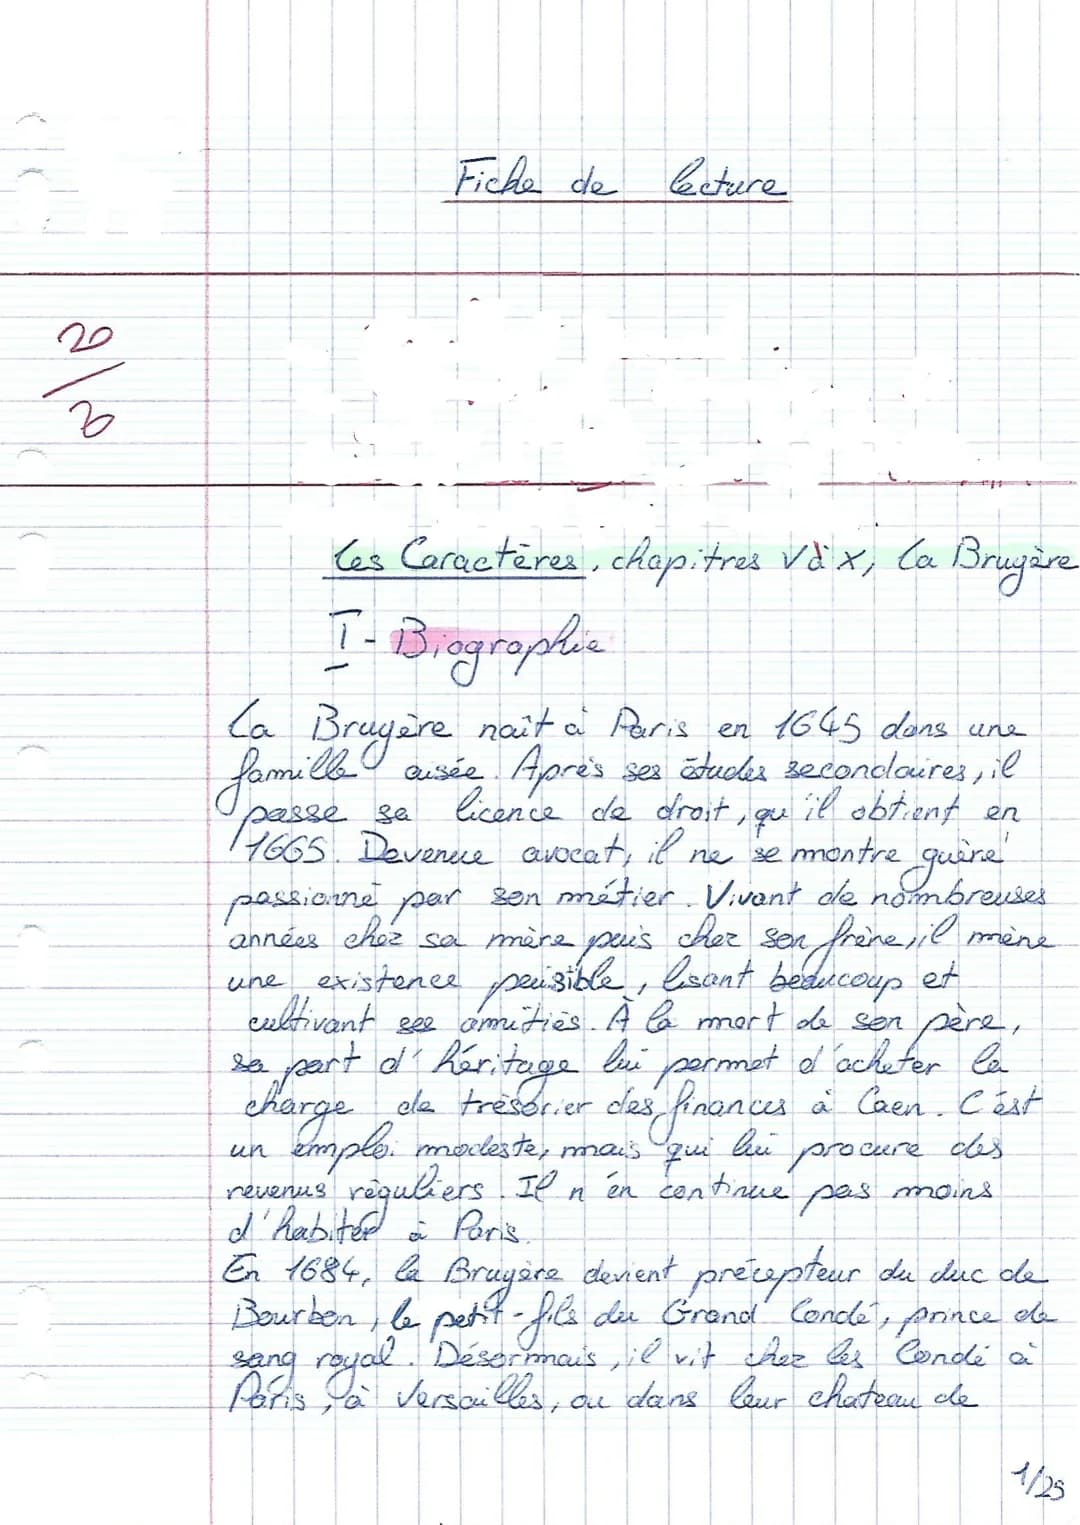 Fiche de lecture
20
Les Caractères, chapitres V à X, La Bruyère
I- Biographie
La Bruyère naît à Paris en 1645 dans une
famille aisée. Après ses études secondaires, il
passe sa licence de droit, qu'il obtient en
1665. Devenue avocat, il ne se montre guère
passionné par son métier. Vivant de nombreuses
années chez sa mère puis chez son frère, il mène
une existence paisible, lisant beaucoup et
cultivant ses amitiés. À la mort de son père,
sa part d'héritage lui permet d'acheter la
charge de trésorier des finances à Caen. C'est
un emploi modeste, mais qui lui procure des
revenus réguliers. Il n'en continue pas moins
d'habiter à Paris.
En 1684, la Bruyère devient précepteur du duc de
Bourbon, le petit-fils du Grand Condé, prince de
sang royal. Désormais, il vit chez les Condé à
Paris, à Versailles, ou dans leur chateau de
1/25